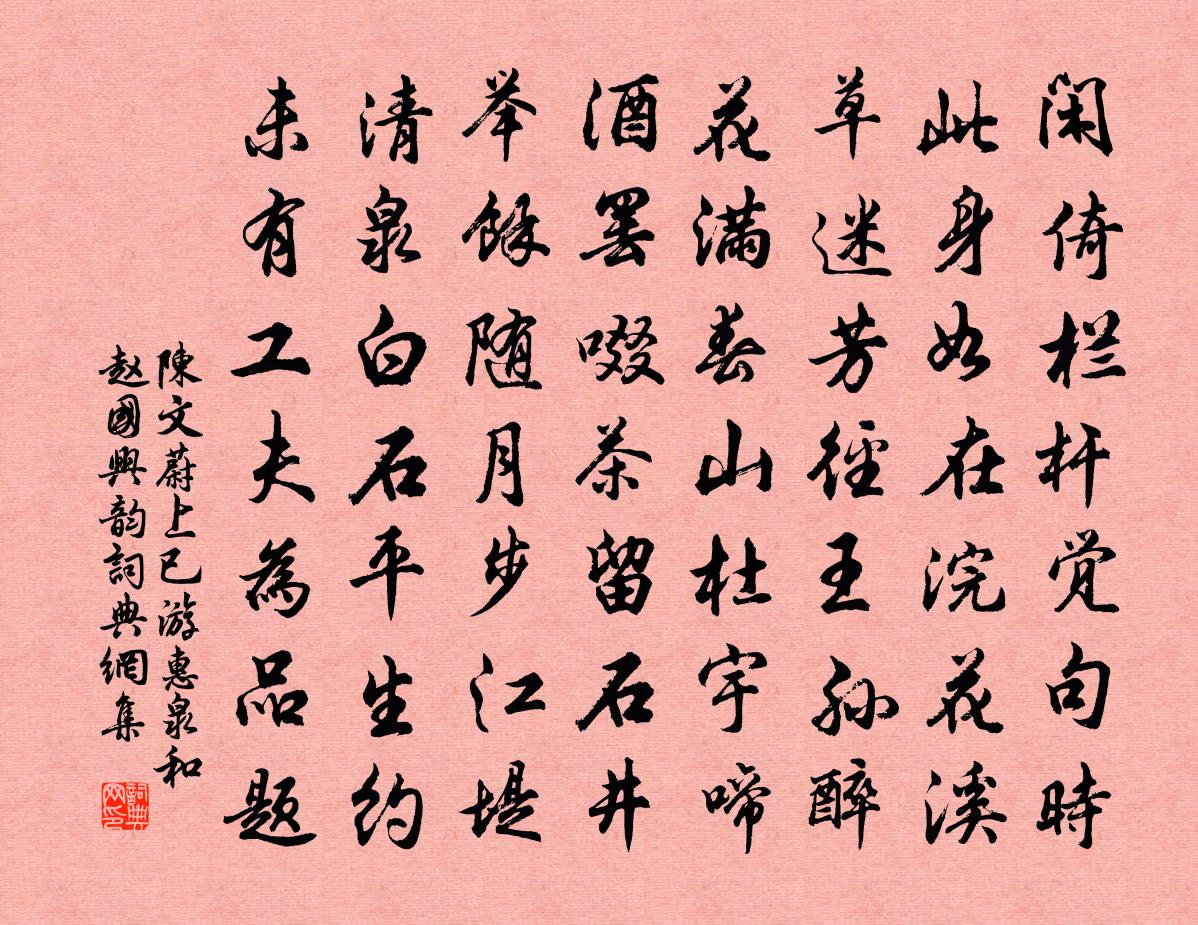 闲倚栏杆觉句时
此身如在浣花溪
草迷芳径王孙醉
花满春山杜宇啼
酒罢啜茶留石井
举馀随月步江堤
清泉白石平生约
未有工夫為品题
陳文蔚上巳游惠泉和
赵國興韵詞典網集
詞典网印